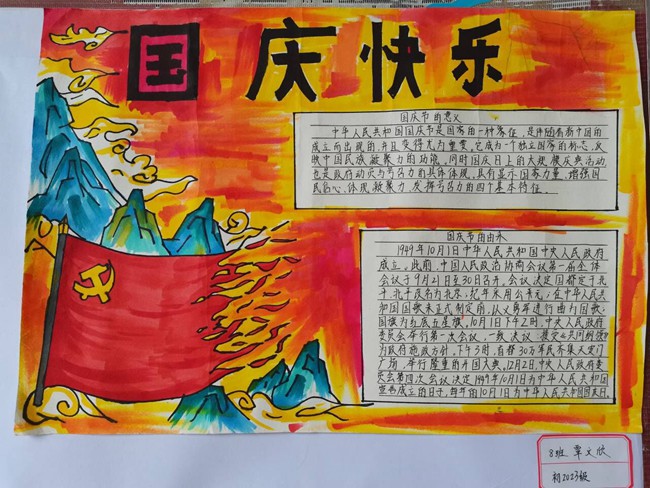 国庆快乐
国庆节的意义
中华人民共和国国庆节是国家的一种象征,是伴随着新中国的
成立而出现的,并且变得尤为重要。它成为一个独立国家的标志,反
映中国民族凝聚力的功能,同时国庆日上的大规模庆典活动,
也是政府动员与号召力的具体体现。具有显示国家力量、增强国
民信心,体现凝聚力,发挥号召力的四个基本特征。
国庆节的由来
1949年10月1日中华人民共和国中央人民政府
成立。此前,中国人民政治协商会议第一届全体
会议于9月21日至30日召开,会议决定国都定于北
平,北平改名为北京,纪年采用公元,在中华人民共
和国国歌未正式制定前,以义勇军进行曲为国歌,
国旗为红底五星旗,10月1日下午2时,中央人民政府
委员会举行第一次会议,一致决议,接受共同纲领
为政府施政方针,下午3时,首都30万军民齐集天安门
广场,举行隆重的开国大典,12月2日,中央人民政府委
员会第四次会议决定1949年10月1日为中华人民共和国
宣告成立的日子,每年的10月1日为中华人民共和国国庆日。
8班 覃文欣
初2023级